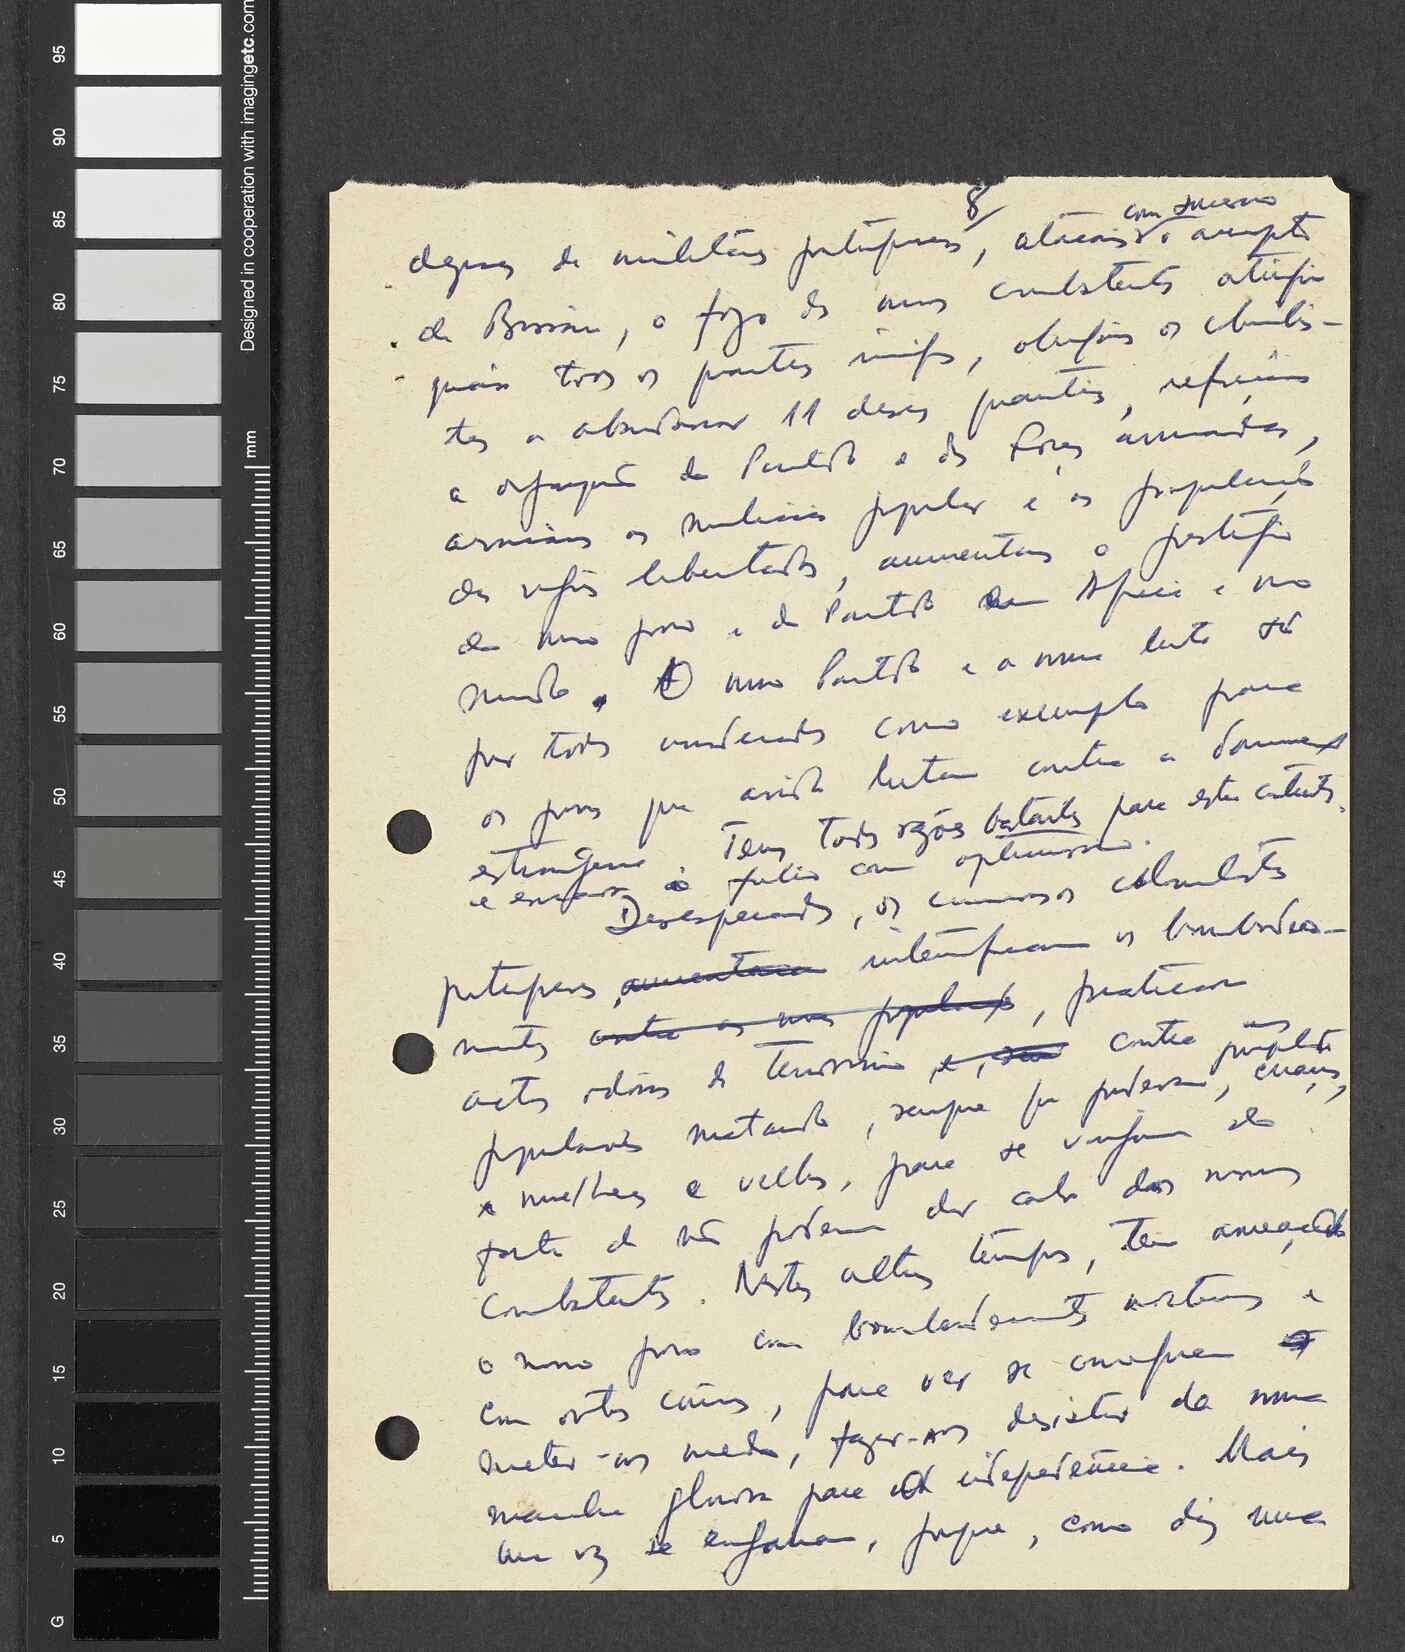 95
90
85
80
75
70
65
60
55
50
45
40
35
30
25
20
15
10
5
G
Designed in cooperation with imagingetc.com
mm
8/
com sucesso
de militares portugueses, atacamos o aeroporto
de Bissau, o fogo dos nossos combatentes atingiu
quasi todos os quarteis inimigos, obrigámos os colonialis-
tas a abandonar 11 desses quarteis, reforçámos
a organização do Partido e das Forças armadas,
armámos as milicias populares e as populações
das regiões libertadas, aumentamos o prestígio
do nosso povo e do Partido em Africa e no
Mundo. O nosso Partido e a nossa luta são
por todos considerados como exemplo para
os povos que ainda lutam contra a dominação
estrangeira. Temos todos razões bastantes para estar contentes,
e encarar o futuro com optimismo.
Desesperados, os criminosos colonialistas
portugueses aumentaram intensificam os bombardea-
mentos contra as nossas populações, praticam
actos odiosos de terrorismo contra as nossas
populações matando, sempre que puderam, crianças,
e mulheres e velhos, para se vingarem do
facto de não poderem dar cabo dos nossos
combatentes. Nestes ultimos tempos, têm ameaçado
o nosso povo com bombardeamentos e
com outras coisas, para ver se conseguem
meter-nos medo, fazer-nos desistir da nossa
marcha gloriosa para a independência. Mais
uma vez se enganam, porque, como diz nossa